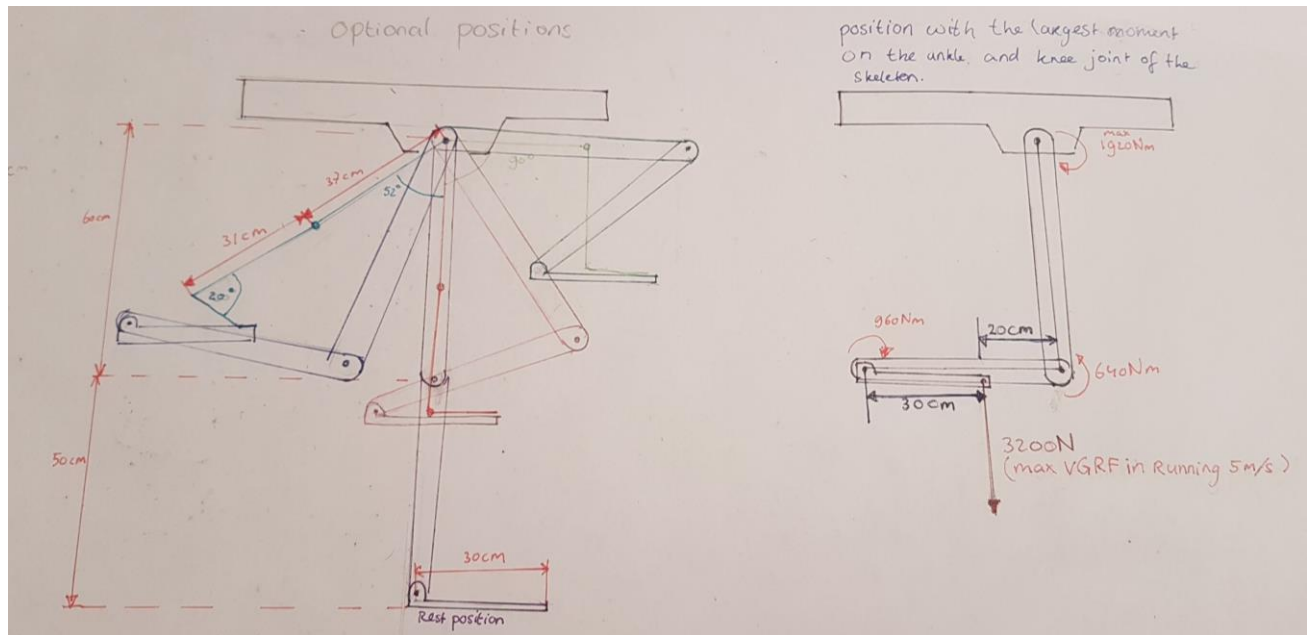 Optional positions
37cm
31cm
60cm
50cm
52°
90°
20°
30cm
Rest position
position with the largest moment
on the ankle and knee joint of the
skeleton.
max
1920Nm
960Nm
20cm
640Nm
30cm
3200N
(max VGRF in Running 5m/s)